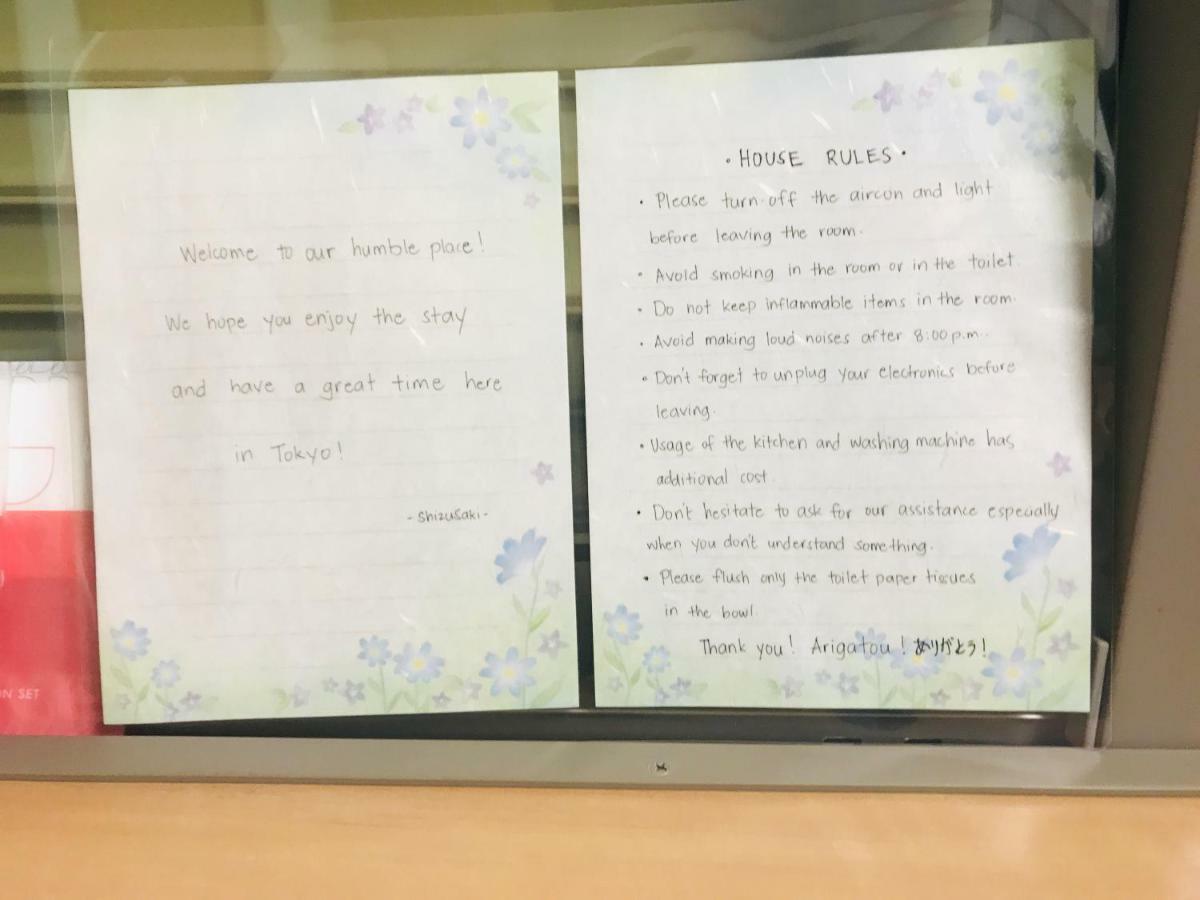 Welcome to our humble place!
We hope you enjoy the stay
and have a great time here
in Tokyo!
- Shizusaki -
• HOUSE RULES •
• Please turn off the aircon and light
before leaving the room.
• Avoid smoking in the room or in the toilet.
• Do not keep inflammable items in the room.
• Avoid making loud noises after 8:00 p.m.
• Don't forget to unplug your electronics before
leaving.
• Usage of the kitchen and washing machine has
additional cost
• Don't hesitate to ask for our assistance especially
when you don't understand something.
• Please flush only the toilet paper tissues
in the bowl.
Thank you! Arigatou! ありがとう!
N SET